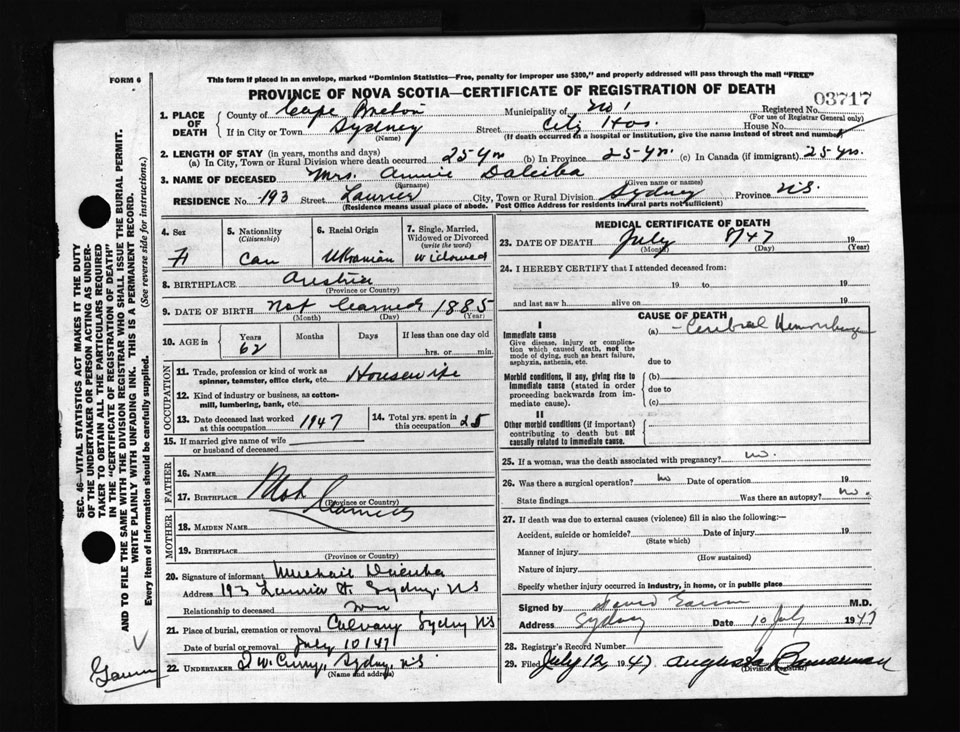 FORM 6
This form if placed in an envelope, marked "Dominion Statistics—Free, penalty for improper use $300," and properly addressed will pass through the mail "FREE"
PROVINCE OF NOVA SCOTIA—CERTIFICATE OF REGISTRATION OF DEATH
03717
1. PLACE OF DEATH
County of Cape Breton Municipality of No 1 Registered No.
(For use of Registrar General only)
If in City or Town Sydney Street City Hos. House No.
(Name) (If death occurred in a hospital or institution, give the name instead of street and number)
2. LENGTH OF STAY (in years, months and days)
(a) In City, Town or Rural Division where death occurred 25 Yrs (b) In Province 25 yrs. (c) In Canada (if immigrant) 25 yrs.
3. NAME OF DECEASED Mrs. Annie Daleiba
(Surname) (Given name or names)
RESIDENCE No. 193 Street Laurier City, Town or Rural Division Sydney Province N.S.
(Residence means usual place of abode. Post Office Address for residents in rural parts not sufficient)
4. Sex
F
5. Nationality
(Citizenship)
Can
6. Racial Origin
Ukranian
7. Single, Married, Widowed or Divorced
(write the word)
Widowed
8. BIRTHPLACE Austria
(Province or Country)
9. DATE OF BIRTH Not learned 1885
(Month) (Day) (Year)
10. AGE in
Years
62
Months
Days
If less than one day old
hrs. or min.
OCCUPATION
11. Trade, profession or kind of work as spinner, teamster, office clerk, etc. Housewife
12. Kind of industry or business, as cotton-mill, lumbering, bank, etc.
13. Date deceased last worked at this occupation 1947
14. Total yrs. spent in this occupation 25
15. If married give name of wife or husband of deceased
FATHER
16. NAME
17. BIRTHPLACE
Not Learned
(Province or Country)
MOTHER
18. MAIDEN NAME
19. BIRTHPLACE
(Province or Country)
20. Signature of informant
Address 193 Laurier St. Sydney, NS
Relationship to deceased Son
21. Place of burial, cremation or removal Calvary Sydney NS
Date of burial or removal July 10 1947
22. UNDERTAKER Sydney, NS
(Name and address)
MEDICAL CERTIFICATE OF DEATH
23. DATE OF DEATH July 8/47 19
(Month) (Day) (Year)
24. I HEREBY CERTIFY that I attended deceased from:
19 to 19
and last saw h alive on 19
CAUSE OF DEATH
I
Immediate cause
Give disease, injury or complication which caused death, not the mode of dying, such as heart failure, asphyxia, asthenia, etc.
(a) Cerebral Hemorrhage
due to
Morbid conditions, if any, giving rise to immediate cause (stated in order proceeding backwards from immediate cause).
(b)
due to
(c)
II
Other morbid conditions (if important) contributing to death but not causally related to immediate cause.
25. If a woman, was the death associated with pregnancy? no.
26. Was there a surgical operation? no Date of operation 19
State findings Was there an autopsy? no.
27. If death was due to external causes (violence) fill in also the following:—
Accident, suicide or homicide? Date of injury 19
(State which)
Manner of injury
(How sustained)
Nature of injury
Specify whether injury occurred in industry, in home, or in public place
Signed by M.D.
Address Sydney Date 10 July 1947
28. Registrar's Record Number
29. Filed July 12, 1947 Augusta
(Division Registrar)
SEC. 46—VITAL STATISTICS ACT MAKES IT THE DUTY
OF THE UNDERTAKER OR PERSON ACTING AS UNDER-
TAKER TO OBTAIN ALL THE PARTICULARS REQUIRED
IN THE "CERTIFICATE OF REGISTRATION OF DEATH"
AND TO FILE THE SAME WITH THE DIVISION REGISTRAR WHO SHALL ISSUE THE BURIAL PERMIT.
WRITE PLAINLY WITH UNFADING INK. THIS IS A PERMANENT RECORD.
Every item of Information should be carefully supplied. (See reverse side for instructions.)